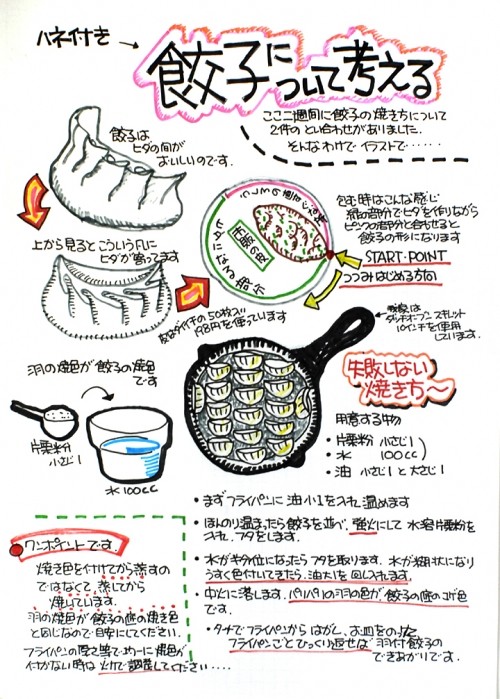 ハネ付き→
餃子について考える
ここ二週間に餃子の焼き方について
2件のとい合わせがありました。
そんなわけでイラストで‥‥‥
餃子は
ヒダの間が
おいしいのです。
上から見るとこういう風に
ヒダが寄ってます
市販の皮
包む時はこんな感じ
緑の部分でヒダを作りながら
ピンクの部分と合わせると
餃子の形になります
START・POINT
つつみはじめる方向
皮はダイイチの50枚入り
198円を使っています
ダッチオーブン スキレット
10インチを使用
しています。
羽の焼色が餃子の焼色
です
片栗粉
小さじ1
水100cc
失敗しない
焼き方〜
用意する物
・片栗粉 小さじ1
・水 100cc
・油 小さじ1と大さじ1
・まずフライパンに油小1を入れ温めます
・ほんのり温まったら餃子を並べ、強火にして水溶片栗粉を
入れ、フタをします。
・水が半分位になったらフタを取ります。水が糊状になり
うすく色付いてきたら、油大1を回し入れます。
・中火に落します。パリパリの羽の色が餃子の底のコゲ色
です。
・ヘラでフライパンからはがし、お皿をのせ
フライパンごとひっくり返せば羽付餃子の
できあがりです。
ワンポイントです。
焼き色を付けてから蒸すの
ではなくて、蒸してから
焼いています。
羽の焼色が餃子の底の焼き色
と同じなので目安にしてください。
フライパンの厚さ等で均一に焼色が
付かない時は火力で調整してください‥‥